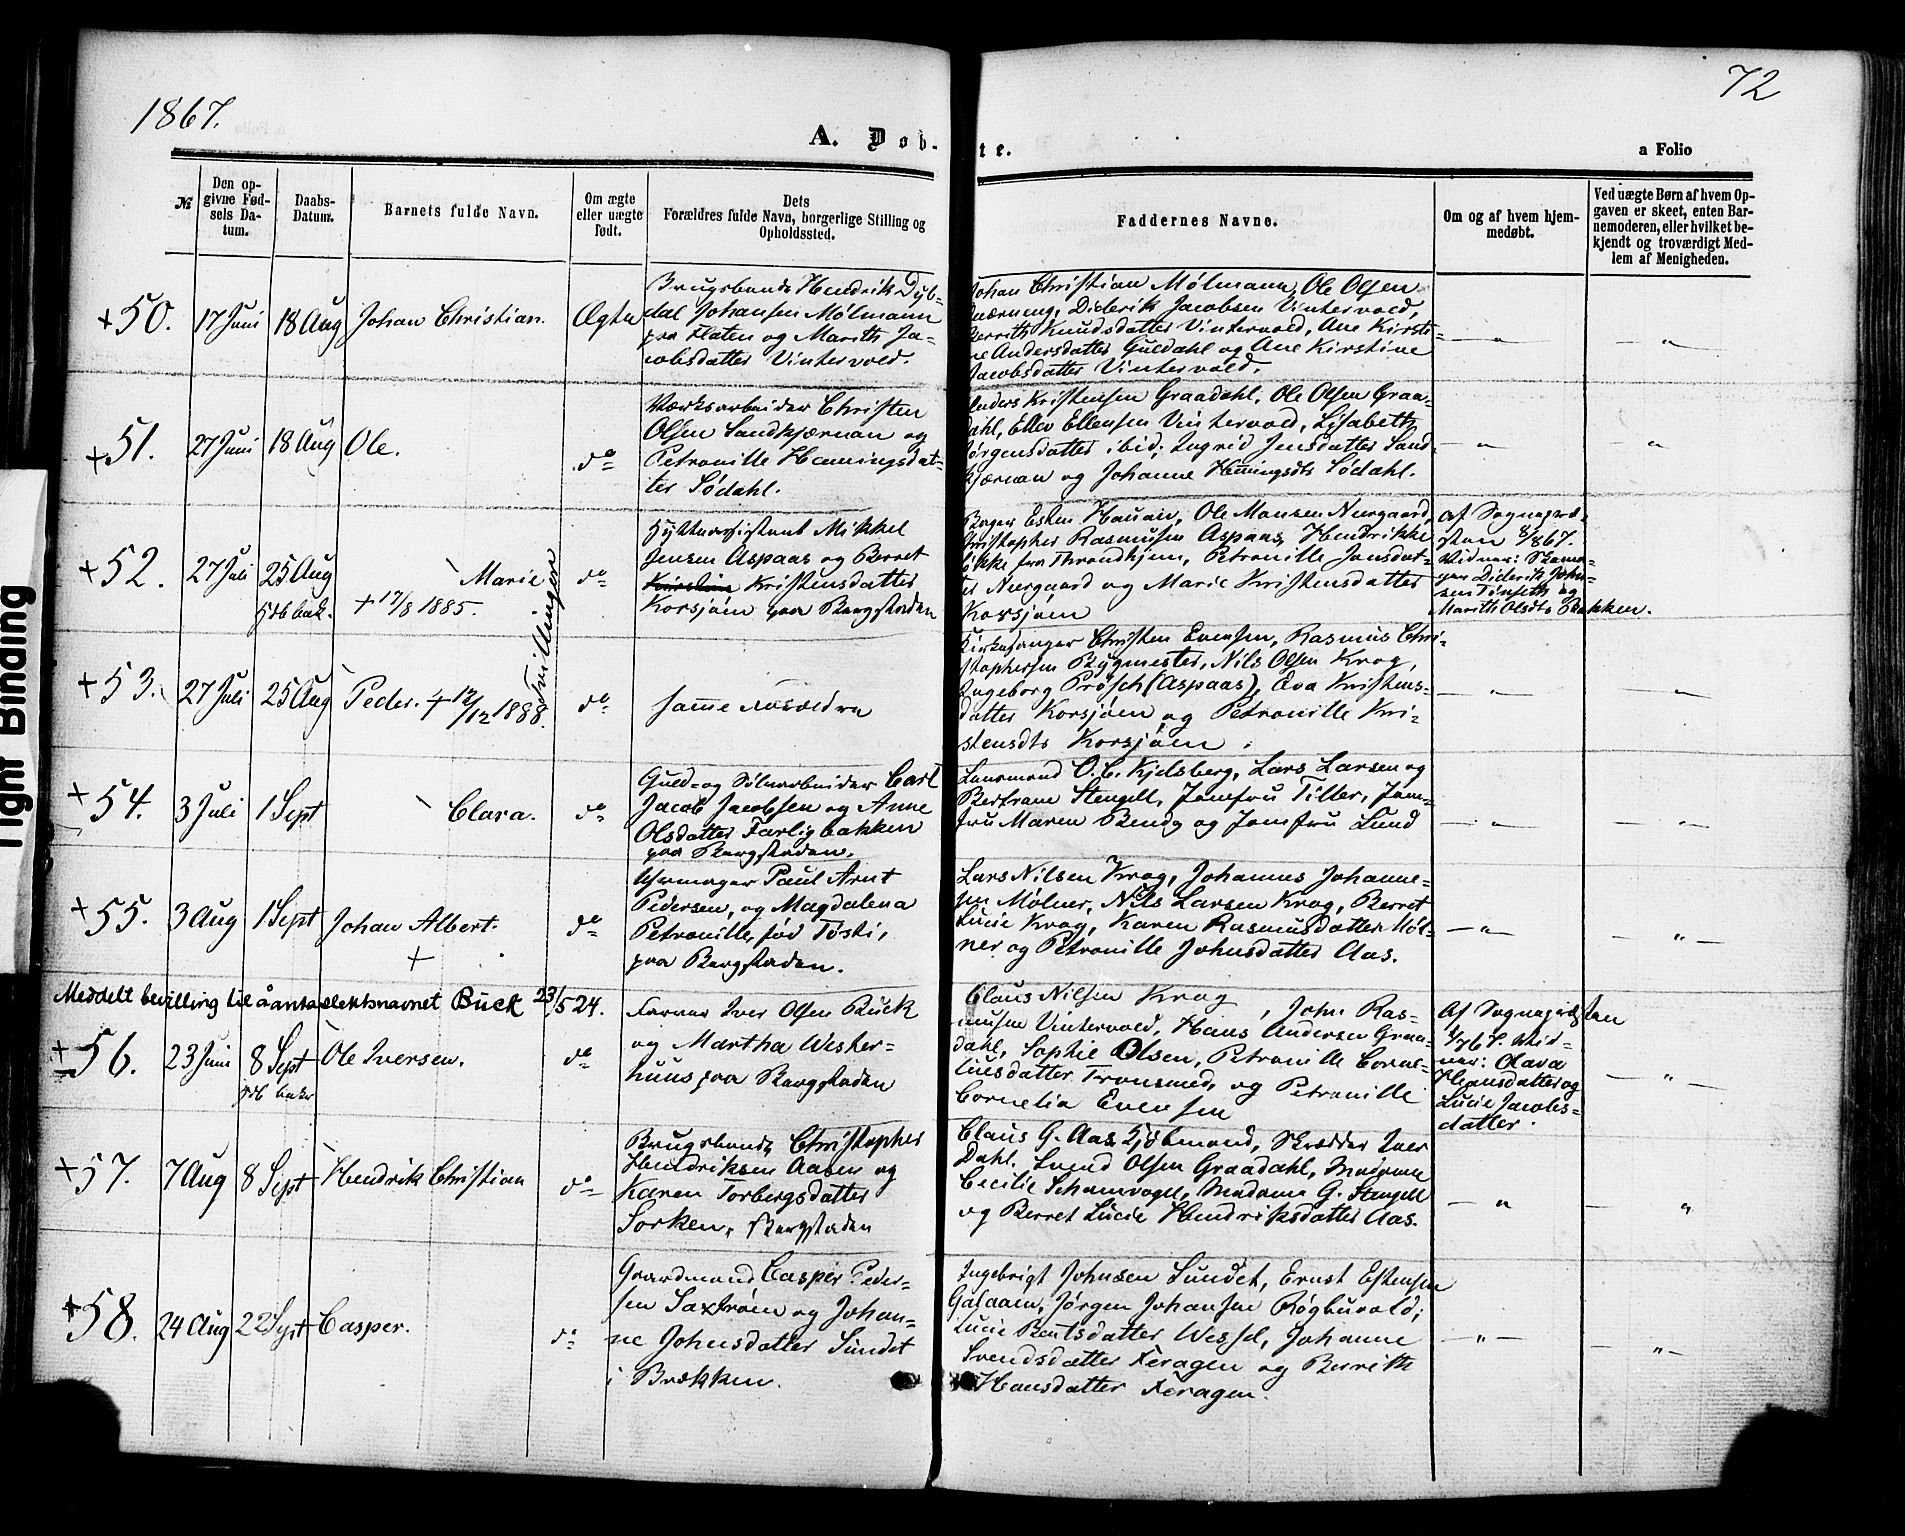 1867.
72
A. Døb-
te.
a Folio
№
Den op-
givne Fød-
sels Da-
tum.
Daabs-
Datum.
Barnets fulde Navn.
Om ægte
eller uægte
født.
Dets
Forældres fulde Navn, borgerlige Stilling og
Opholdssted.
Faddernes Navne.
Om og af hvem hjem-
medøbt.
Ved uægte Børn af hvem Op-
gaven er skeet, enten Bar-
nemoderen, eller hvilket be-
kjendt og troværdigt Med-
lem af Menigheden.
+50. 17 Juni 18 Aug Johan Christian. Ægte
Brugsbonde Hendrik Dyb-
dal Johansen Mølmann
paa Flaten og Marith Ja-
cobsdatter Vintervold.
Johan Christian Mølmann, Ole Olsen
Diderik Jacobsen Vintervold,
Berrith Knudsdatter Vintervold, Ane Kirsti-
ne Andersdatter Guldahl og Ane Kirstine
Jacobsdatter Vintervold.
— " —
— " —
+51. 27 Juni 18 Aug Ole. do
Værksarbeider Christen
Olsen Sandkjærnan og
Petronille Hemingsdat-
ter Sødahl.
Anders Kristensen Graadahl, Ole Olsen Graa-
dahl, Ellev Ellensen Vintervold, Lisabeth
Jørgensdatter ibid; Ingrid Jensdatter Sand-
kjærnan og Johanne Hemingsdtr Sødahl.
— " —
"
+52. 27 Juli 25 Aug Marie do
sth bek.
+ 17/8 1885.
Tvillinger
Hytteassistent Mikkel
Jensen Aspaas og Berret
Kirstine Kristensdatter
Korsjøen paa Bergstaden
Borger Esten Hauan, Ole Monsen Neergaard,
Christopher Rasmusen Aspaas, Hendrikke
fra Throndhjem, Petronille Jensdat-
ter Neergaard og Marie Kristensdatter
Korsjøen
Af Sognepræ-
sten 8/867.
Vidner: Skoma-
ger Diderik John-
sen Tønseth og
Marith Olsdtr Bakken.
+53. 27 Juli 25 Aug Peder. + 12/12 1888. do
samme Forældre
Kirkesanger Christen Evensen, Rasmus Chri-
stophersen Bygmester, Nils Olsen Krog,
Ingeborg Prøsch (Aspaas), Eva Kristens-
datter Korsjøen og Petronille Kri-
stensdtr Korsjøen.
— " —
— " —
+54. 3 Juli 1 Sept Clara. do
Guld- og Sølvarbeider Carl
Jacob Jacobsen og Anne
Olsdatter Farligbakken
paa Bergstaden.
Lensmand O. C. Kjelsberg, Lars Larsen og
Bertram Stengell, Jomfru Tiller, Jom-
fru Maren Bendz og Jomfru Lund
— " —
— " —
+55. 3 Aug 1 Sept Johan Albert. do
+
Uhrmager Paul Arnt
Pedersen, og Magdalena
Petronille, fød Tøsti,
paa Bergstaden.
Lars Nilsen Krog, Johannes Johanne-
sen Mølner, Nils Larsen Krog, Berret
Lucie Krog, Karen Rasmusdatter Møl-
ner og Petronille Johnsdatter Aas.
— " —
" —
Meddelt bevilling til å anta slektsnavnet Buck 23/5 24.
+56. 23 Juni 8 Sept Ole Iversen. do
sth bekr
Farver Iver Olsen Buck
og Martha Wester-
huus paa Bergstaden
Claus Nilsen Krog, John Ras-
musen Vintervold, Hans Andersen Graa-
dahl, Sophie Olsen, Petronille Corne-
liusdatter Tronsmed, og Petronille
Cornelia Evensen
Af Sognepræsten
8/7 67. Vid-
ner: Olava
Hansdatter og
Lucie Jacobs-
datter.
— " —
+57. 7 Aug 8 Sept Hendrik Christian do
Brugsbonde Christopher
Hendriksen Aasen og
Karen Torbergsdatter
Sorken, Bergstaden
Claus G. Aas, Kjøbmand, Skrædder Iver
Dahl. Svend Olsen Graadahl, Madame
Cecilie Schamvogel, Madame G. Stengell
og Berret Lucie Hendriksdatter Aas.
— " —
— "
+58. 24 Aug 22 Sept Casper. do
Graardmand Casper Peder-
sen Saxtrøen og Johan-
ne Johnsdatter Sundet
i Brækken.
Ingebrigt Johnsen Sundet, Ernst Estensen
Galaaen, Jørgen Johansen Røgburvold;
Lucie Bentsdatter Wessel, Johanne
Svendsdatter Feragen og Berrith
Hansdatter Feragen.
— " —
— " —
Tight Binding